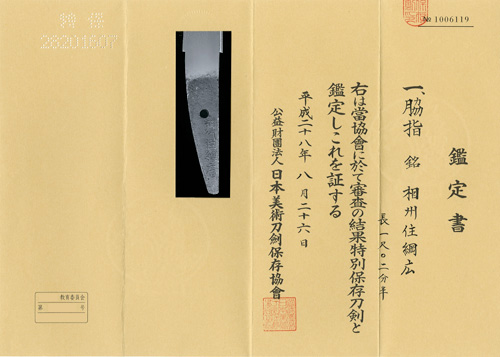 № 1006119
鑑定書
一、脇指 銘 相州住綱広
長一尺〇二分半
右は當協會に於て審査の結果特別保存刀剣と
鑑定しこれを証する
平成二十八年八月二十六日
公益財團法人日本美術刀剣保存協會
教育委員会
第 号